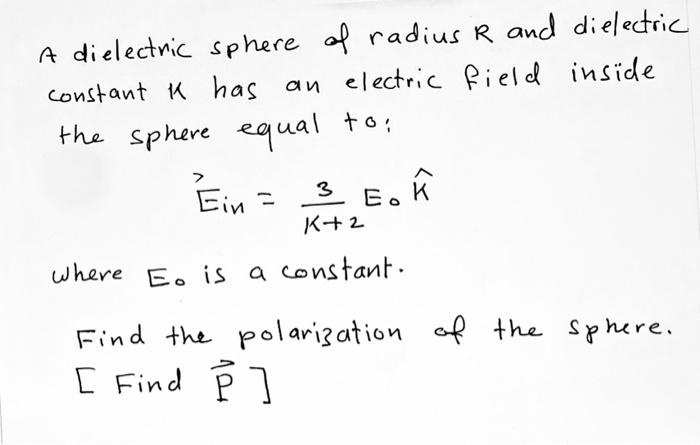 A dielectric sphere of radius R and dielectric
constant K has an electric field inside
the sphere equal to:
E⃗in = 3/(K+2) E₀ k̂
where E₀ is a constant.
Find the polarization of the sphere.
[ Find P⃗ ]